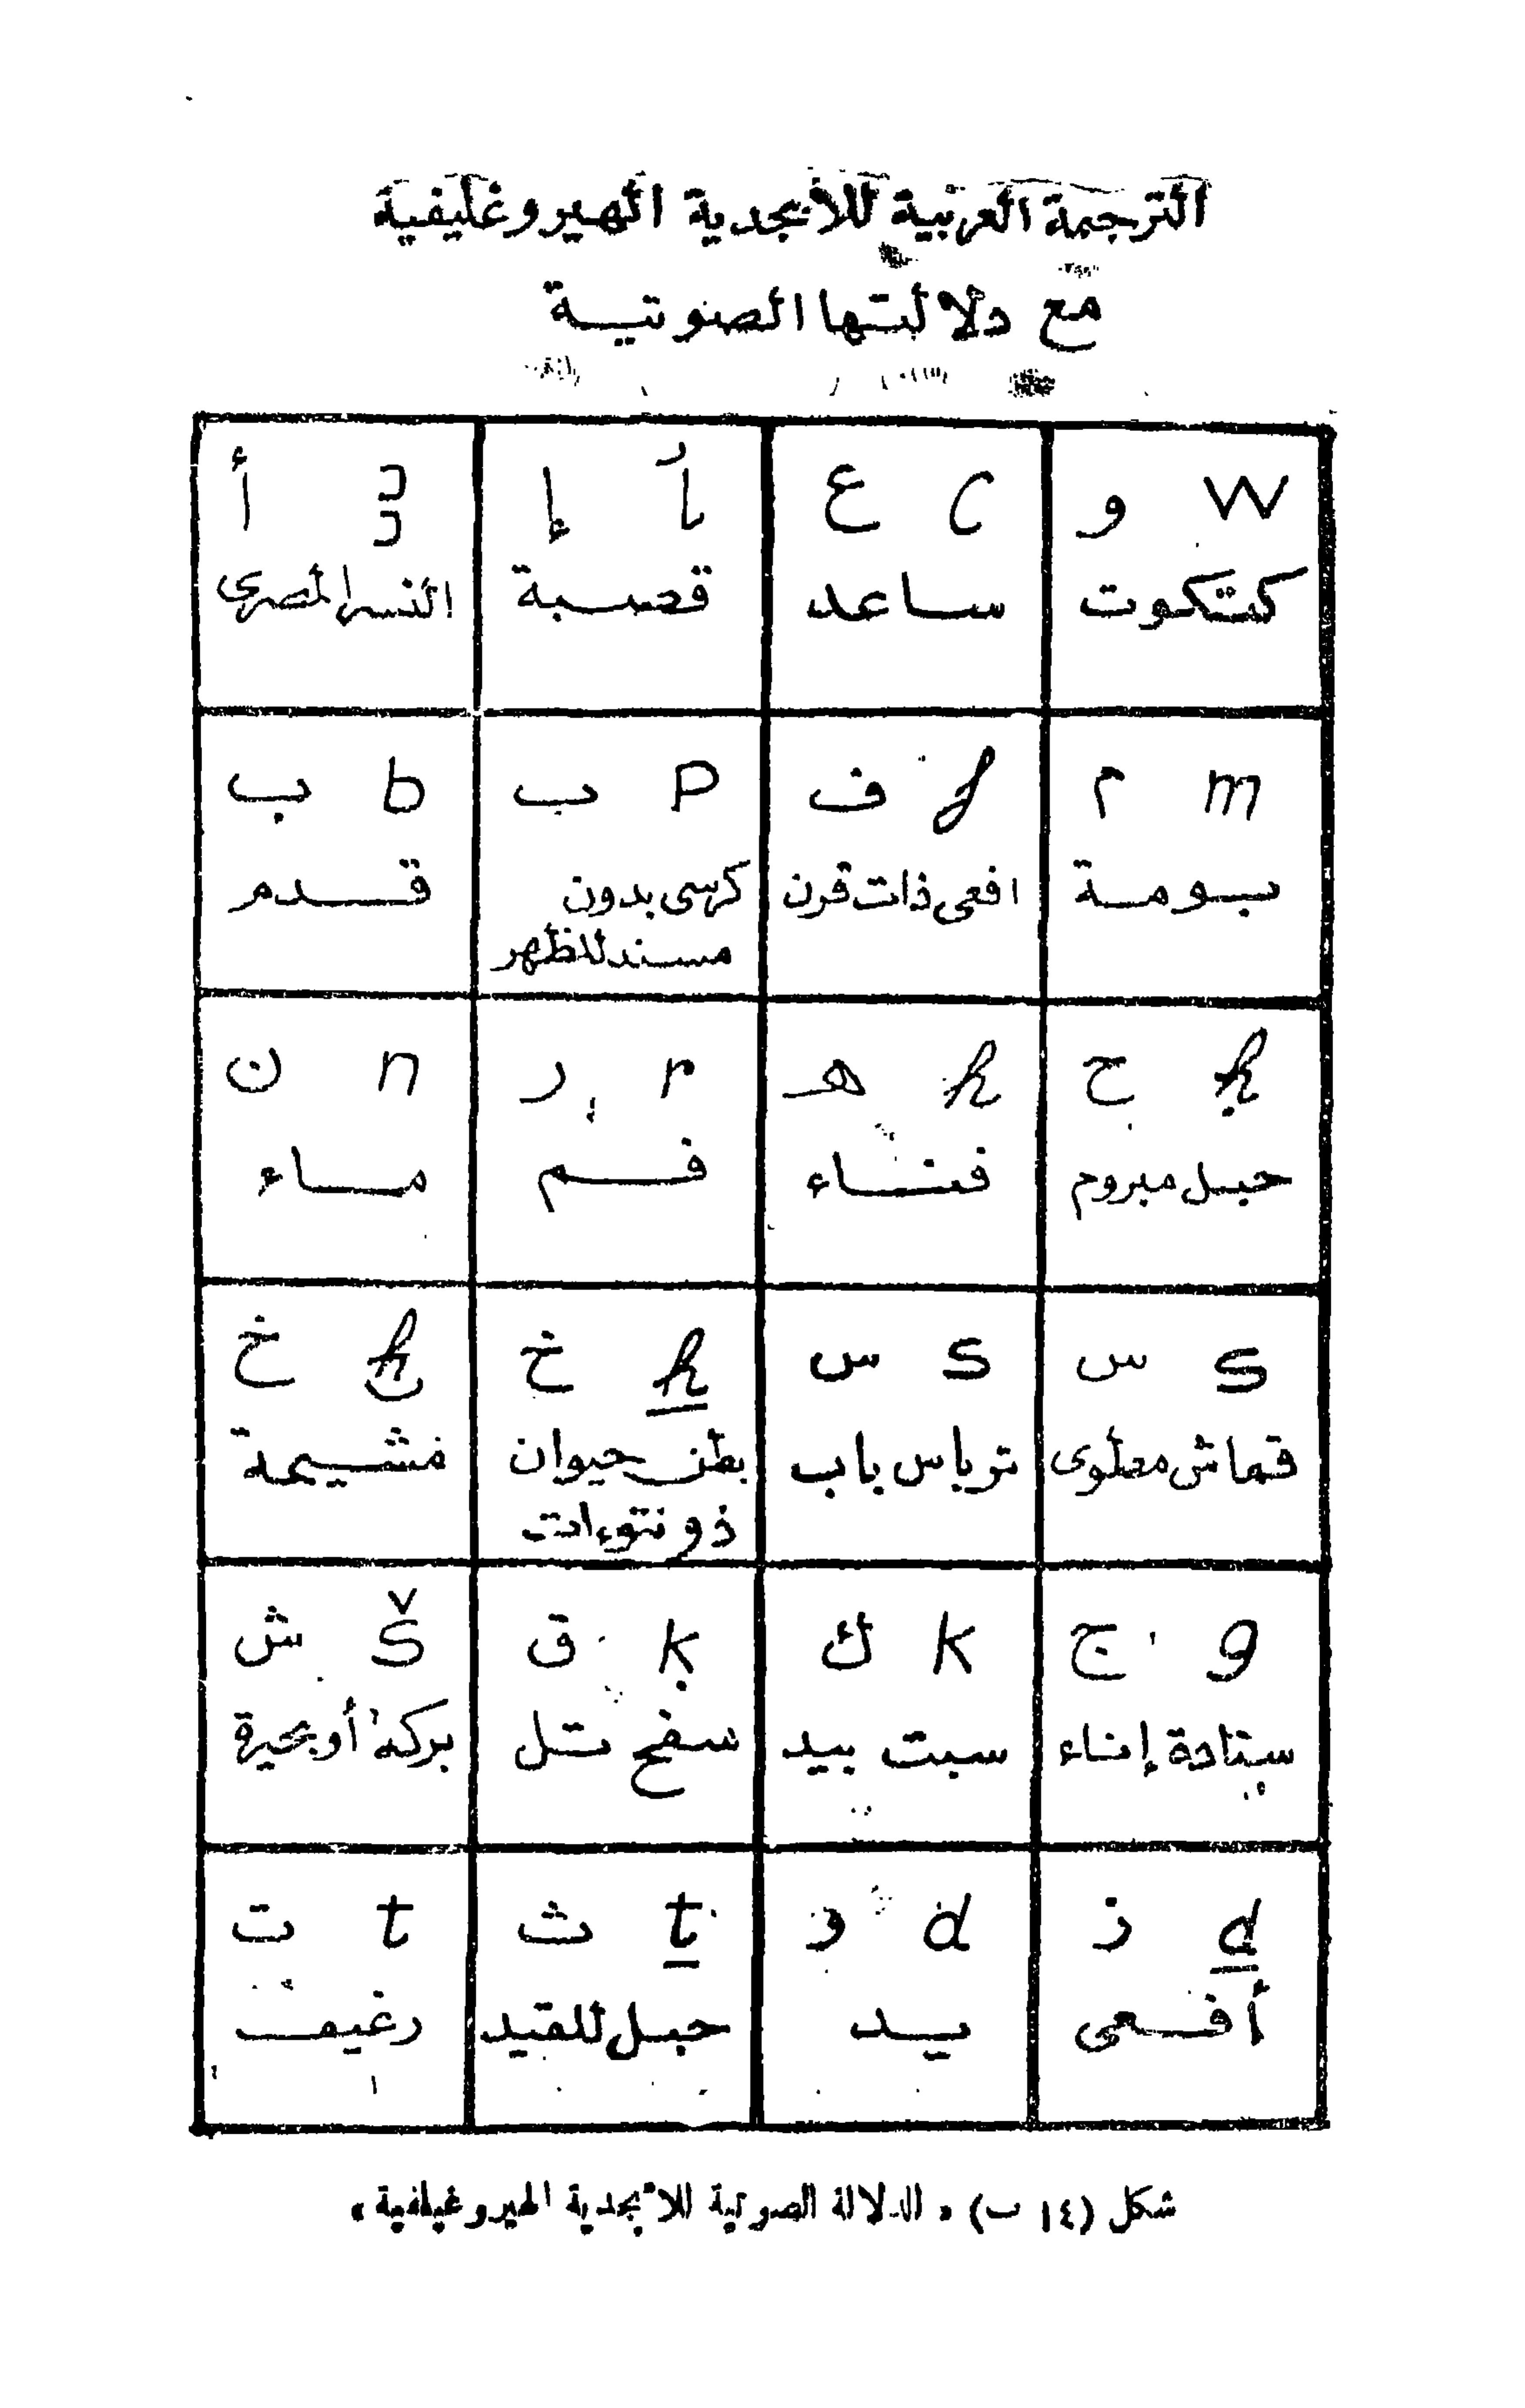 الترجمة العربية للأبجدية الهيروغليفية
مع دلالتها الصوتية
w و
كتكوت
ع
ساعد
إ
قصبة
ꜣ أ
النسر المصرى
m م
بومة
f ف
افعى ذات قرن
p ب
كرسى بدون
مسند للظهر
b ب
قدم
ḥ ح
حبل مبروم
h هـ
فناء
r ر
فم
n ن
ماء
s س
قماش مطوى
s س
ترباس باب
ẖ خ
بطن حيوان
ذو نتوءات
ḫ خ
مشيمة
g ج
ستادة إناء
k ك
سبت بيد
ḳ ق
سفح تل
š ش
بركة أو بحيرة
ḏ ز
أفعى
d
يد
ṯ ث
حبل للقيد
t ت
رغيف
شكل (١٤ ب) « الدلالة الصوتية للأبجدية الهيروغليفية »